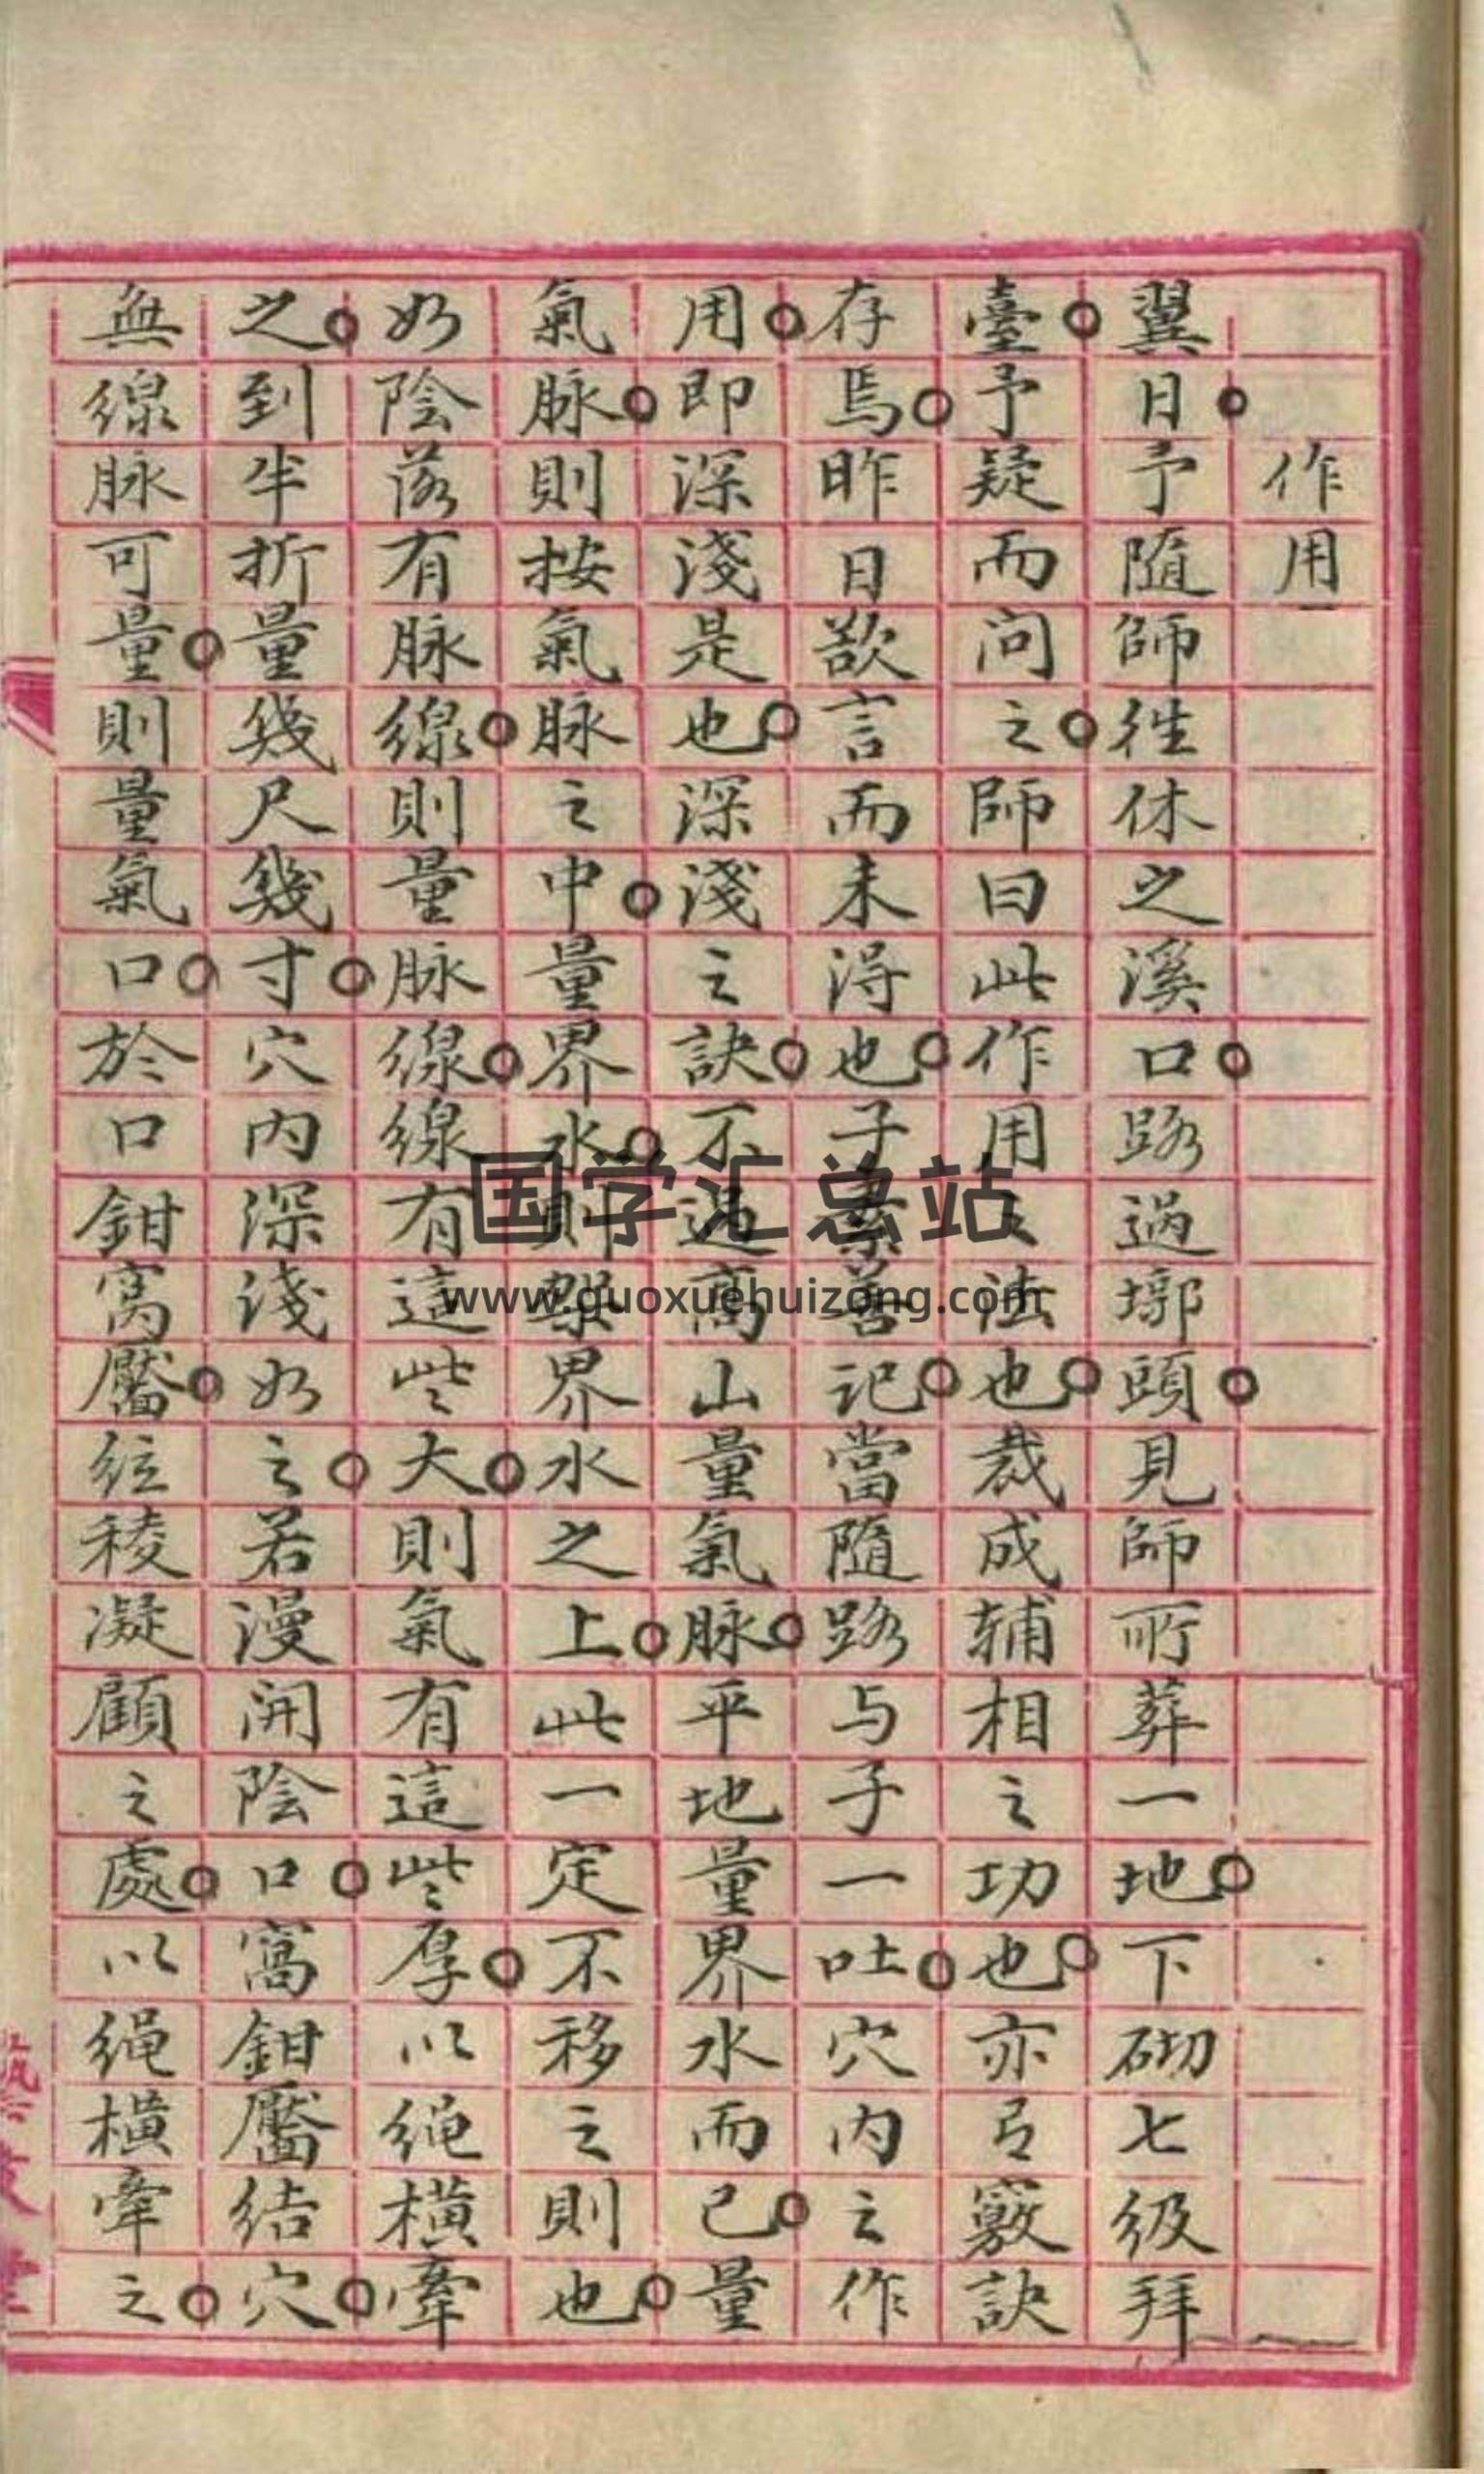 作用
翼日予隨師徃休之溪口路過墎頭見師所葬一地下砌七级拜
臺予疑而问之師曰此作用之法也裁成辅相之功也亦有竅訣
存焉昨日欲言而未淂也子素善记當隨路与子一吐穴内之作
用即深淺是也深淺之訣不過高山量氣脉平地量界水而已量
氣脉則按氣脉之中量界水則架界水之上此一定不移之則也
如陰落有脉線則量脉線線有這些大則氣有這些厚以绳横牽
之到半折量幾尺幾寸穴内深淺如之若漫開陰口窩鉗靨结穴
無線脉可量則量氣口於口鉗窝靨絃稜凝顧之處以绳横牽之
国学汇总站
www.guoxuehuizong.com